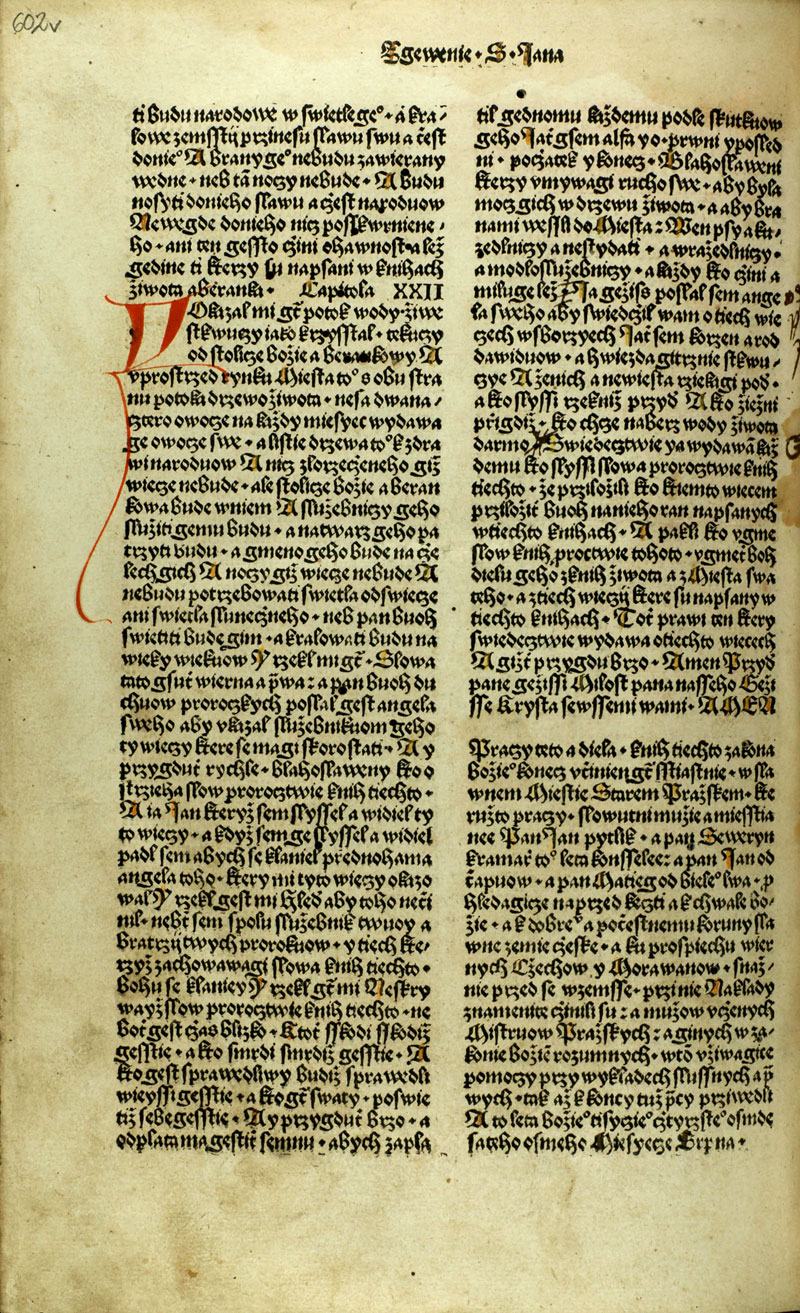 602v
Zgewenie • S • Jana
ti budu narodowe w swietle ge° • a kra/
lowe zemsstij przinesu slawu swu a cžest
do nie° A brany ge° nebudu zawierany
we dne • neb tā nocy nebude • A budu
nosyti do nieho slawu a cżest naroduow
Newegde do nieho nic posskwrniene/
ho • ani ten gessto cżini ohawnost a lež
gedine ti kterzy su napsani w knihach
žiwota a beranka • Capitola XXII
Ukazal mi gt̄ potok wody • žiwe
stkwucy iako krzysstal • tekucy
od stolice božie a berankowy A
vprostrzed rynku Miesta to° s obu stra
nu potoka drzewo žiwota • nesa dwana/
cztero owoce na každy miesyec wydawa
ge owoce swe • a listie drzewa to° k zdra
wi naroduow A nic zlorzecżeneho giž
wiece nebude • ale stolice božie a beran
kowa bude w niem A služebnicy geho
služiti gemu budu • a na twarz geho pa
trzyti budu • a gmeno geho bude na cże
lech gich A nocy giž wiece nebude A
nebudu potrzebowati swietla od swiece
ani swietla slunecżneho • neb pan buoh
swietiti bude gim • a kralowati budu na
wieky wiekuow Y rzekl mi gt̄ • Slowa
tato gsut wierna a p̄wa : a pan buoh du
chuow prorockych poslal gest angela
sweho aby vkazal služebnikuom geho
ty wiecy ktere se magi skoro stati • A y
przygdut̄ rychle • blahoslaweny kto o
strzieha slow proroctwie knih tiechto •
A ia Jan kteryž sem slyssel a widiel ty
to wiecy • a když sem ge slyssel a widiel
padl sem abych se klaniel przed nohama
angela toho • ktery mi tyto wiecy okazo
wal Y rzekl gest mi Hled aby toho necži
nil • nebt̄ sem spolu služebnik twuoy a
bratrzij twych prorokuow • y tiech kte/
rzyž zachowawagi slowa knih tiechto •
Bohu se klaniey Y rzekl gt̄ mi Neskry
way slow proroctwie knih tiechto • ne
bot̄ gest cżas blizko • Ktot̄ sskodi sskodiž
gesstie • a kto smrdi smrdiž gesstie • A
kto gest sprawedliwy budiž sprawedli
wieyssi gesstie • a kto gt̄ swaty • poswie
tiž sebe gesstie • A y przygdut̄ brzo • a
odplata ma gestit̄ semnu • abych zapla
til gednomu každemu podle skutkuow
geho Jat̄ gsem alfa y o • prwni y posled
ni • pocżatek y konec • Blahoslaweni
kterzy vmywagi rucho swe • aby byla
moc gich w drzewu žiwota • a aby bra
nami wessli do Miesta : Wen psy a ku/
zedlnicy a nestydati • a wražedlnicy •
a modloslužebnicy • a každy kto cżini a
miluge lež Ja gežiss poslal sem ange
la sweho aby swiedcżil wam o tiech wie
cech w sborzyech Jat̄ sem korzen a rod
dawiduow • a hwiezda gitrznie stkwu/
cye A ženich a newiesta rziekagi pod •
a kto slyssi rzekniž przyd A kto žiezni
przigdiž • kto chce nabers wody žiwota
darmo Swiedectwie ya wydawā kaž
demu kto slyssi slowa proroctwie knih
tiechto • že prziložili kto k tiemto wiecem
prziložit̄ buoh na nieho ran napsanych
w tiechto knihach • A pakli kto vgme
slow knih proctwie tohoto • vgmet̄ boh
dielu geho z knih žiwota a z Miesta swa
teho • a z tiech wiecij ktere su napsany w
tiechto knihach • Tot̄ prawi ten ktery
swiedectwie wydawa o tiechto wiecech
A gižt̄ przygdu brzo • Amen Przyd
pane gežissi Milost pana nasseho Geži
sse Krysta se wssemi wami • AMEN
Pracy teto a diela • knih tiechto zakona
božie° konec vcžinien gt̄ sstiastnie • w sla
wnem Miestie Starem Pražskem • kte
ružto pracy • slowutni mužie a miesstia
nee Pan Jan pytlik • a pan Seweryn
kramarz to° leta konssele : a pan Jan od
cžapuow • a pan Matieg od biele° lwa • p
hledagice naprzed k cti a k chwale bo/
žie • a k dobre° a pocžestnemu koruny sla
wne zemie cżeske • a ku prospiechu wier
nych Cżechow y Morawanow • snaž/
nie przed se wzemsse • przi nie Naklady
znamenite cżinili su : a mužow vcżenych
Mistruow Pražskych : a ginych w za/
konie božiē rozumnych • w tō vžiwagice
pomocy przy wykladech slussnych a p̄
wych • tak až k koncy tuž p̄cy prziwedli
A to leta božie° tisycie° cżtyrzste° osmde
sateho osmeho Miesyece Srpna •